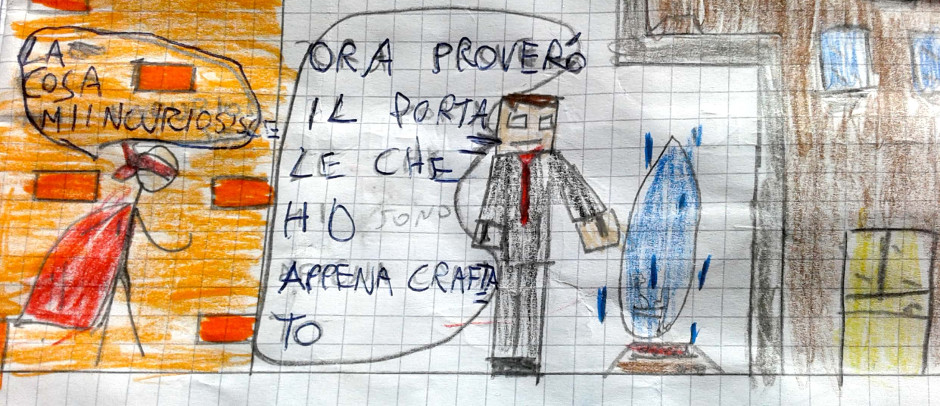 LA
COSA
MI INCURIOSISCE
ORA PROVERÓ
IL PORTA
LE CHE
HO SONO
APPENA CRAFTA
TO